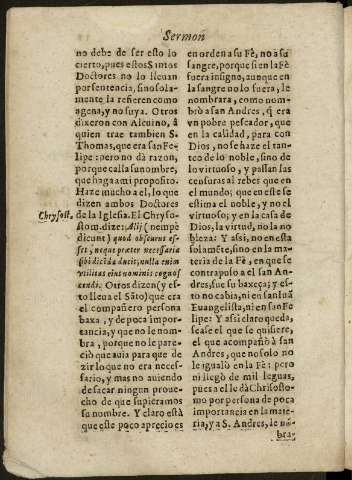 Sermon
no debe de ser esto lo
cierto, pues estos Santos
Doctores no lo lleuan
por sentencia, sino sola-
mente la refieren como
agena, y no suya. Otros
dixeron con Alcuino, à
quien trae tambien S.
Thomas, que era san Fe-
lipe: pero no dà razon,
porque calla su nombre,
que haga a mi proposito.
Haze mucho a el, lo que
dizen ambos Doctores
Chrysost.
de la Iglesia. El Chryso-
stom. dize: Alij (nempè
dicunt) quod obscurus es-
set, neque præter necessaria
sibi dicēda ducit; nulla enim
vtilitas eius nominis cognos
cendi. Otros dizen (y es-
to lleua el Sāto) que era
el compañero persona
baxa, y de poca impor-
tancia, y que no le nom-
bra, porque no le pare-
ciò que auia para que de
zirlo que no era neces-
sario, y mas no auiendo
de sacar ningun proue-
cho de que supieramos
su nombre. Y claro està
que este poco aprecio es
en orden a su Fè, no à su
sangre, porque si en la Fè
fuera insigne, aunque en
la sangre no lo fuera, le
nombrara, como nom-
brò a san Andres, q̃ era
vn pobre pescador, que
en la calidad, para con
Dios, no se haze el tan-
teo de lo noble, sino de
lo virtuoso, y passan las
censuras al rebes que en
el mundo; que en este se
estima el noble, y no el
virtuoso; y en la casa de
Dios, la virtud, no la no
bleza: Y assi, no en esta
solamēte, sino en la ma-
teria de la Fè, en que se
contrapuso a el san An-
dres, fue su baxeça; y es-
to no cabia, ni en san Iuā
Euangelista, ni en san Fe
lipe: Y assi claro queda,
sease el que se quisiere,
el que acompañò à san
Andres, que no solo no
le igualò en la Fè; pero
ni llegò de mil leguas,
pues a el le dà Chrysosto-
mo por persona de poca
importancia en la mate-
ria, y a S. Andres, le nō
bra-